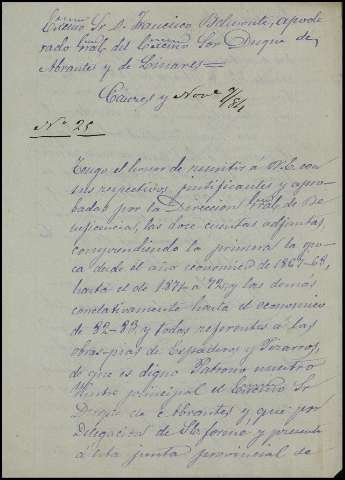 Excmo Sr D. Francisco Belmonte, apode
rado Gral. del Excmo Sor Duque de
Abrantes y de Linares=
Cáceres y Nove 9/84
No 25
Tengo el honor de remitir á V.E. con
sus respectivos justificantes y apro-
badas por la Direccion Gral de Be
neficencia, las doce cuentas adjuntas,
comprendiendo la primera la épo
ca desde el año económico de 1867-68,
hasta el de 1871 á 72, y las demás
correlativamente hasta el economico
de 82-83, y todas referentes á las
obras-pias de Espaderos y Pizarros,
de que es digno Patrono nuestro
Ilustre principal el Excmo Sr
Duque de Abrantes, y que por
delegacion de S.E. formé y presenté
á esta junta provincial de